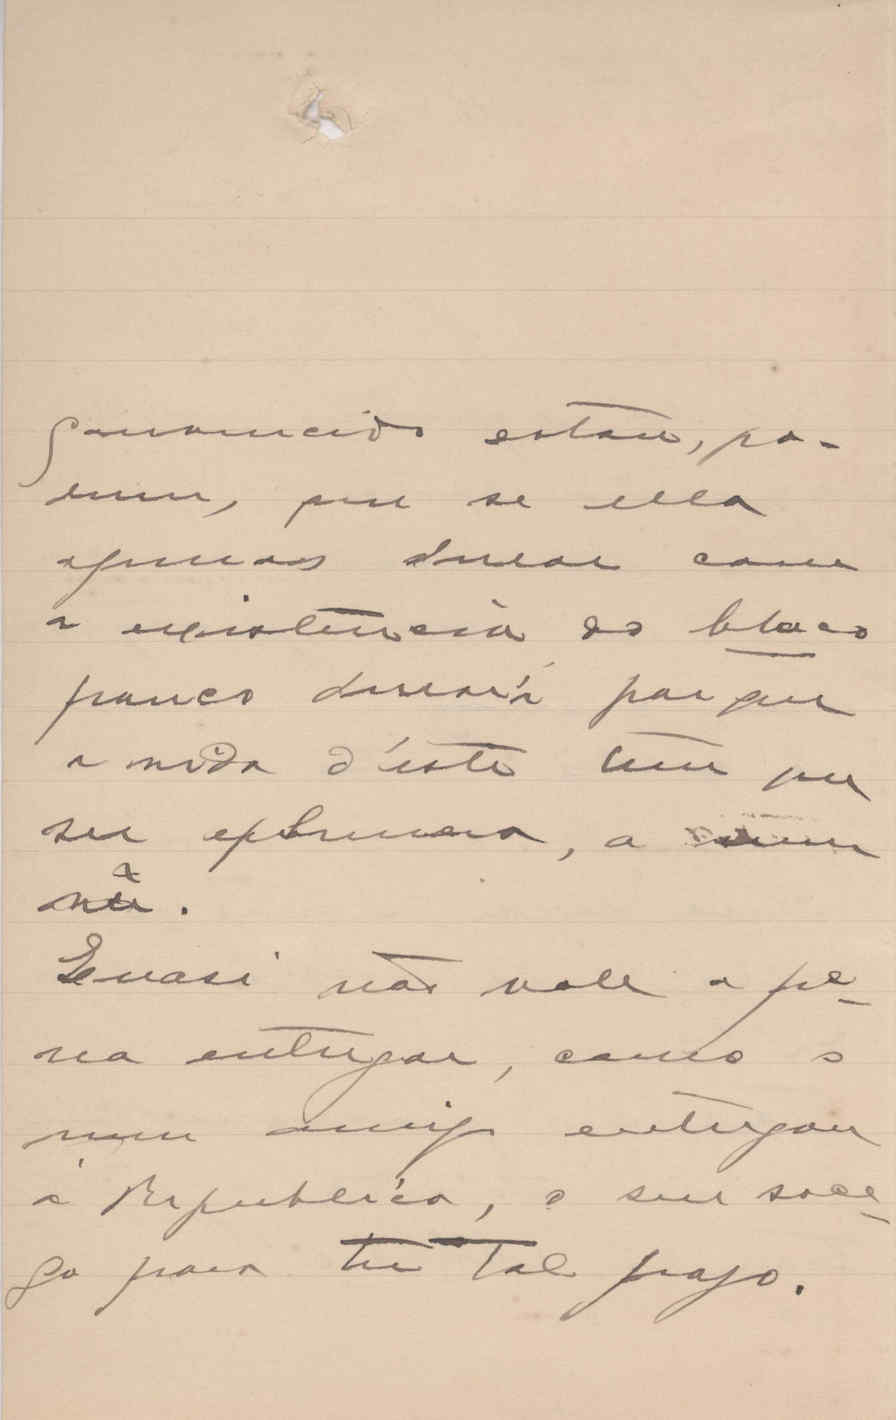 Convencido estou, po-
rem, que se ella
apenas durar como
a existencia do bloco
pouco durará porque
a vida d'este tem que
ser ephemera, a meu
vêr.
Quasi não vale a pe-
na entregar, como o
meu amigo entregou
á Republica, o seu soce-
go para ter tal pago.